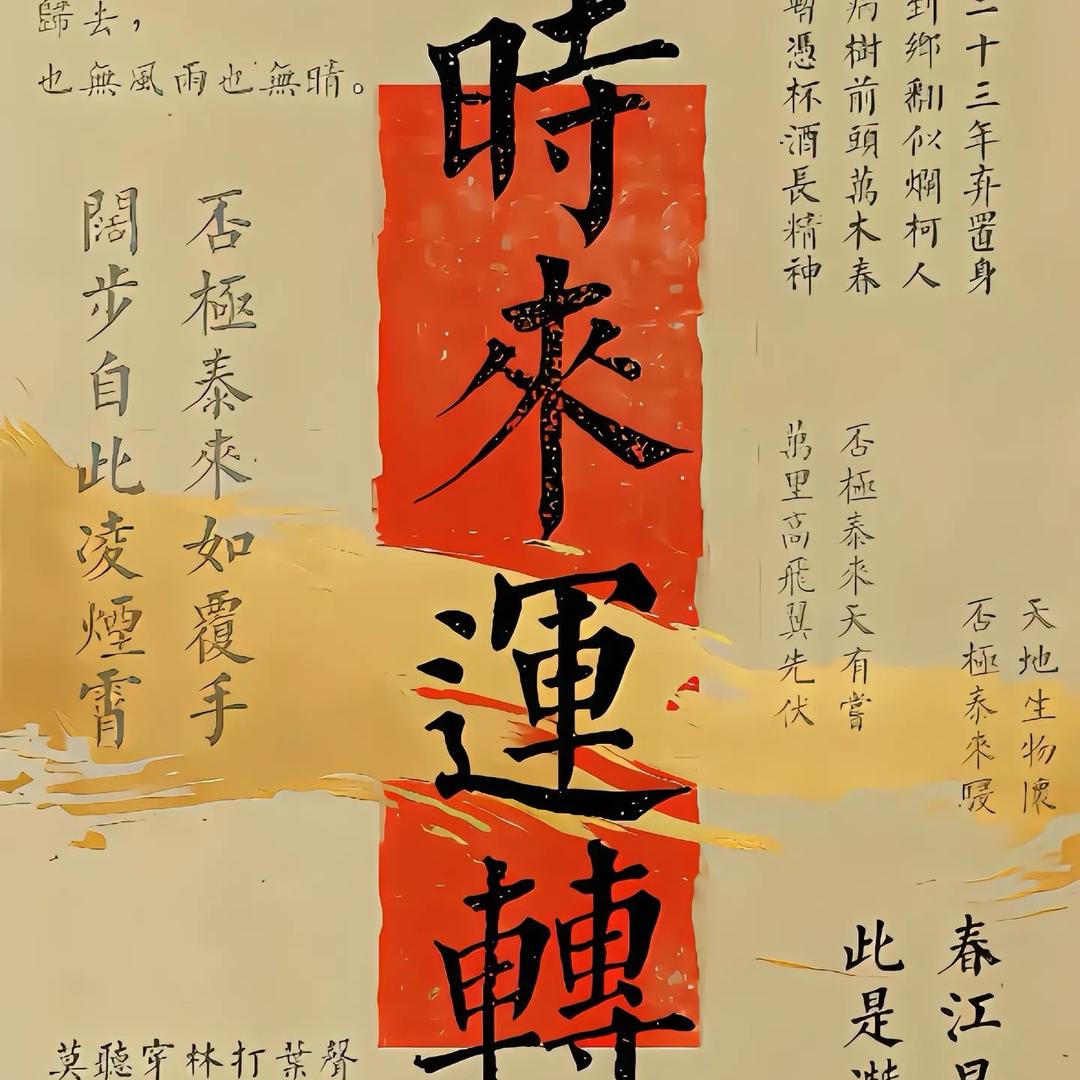 歸去，
也無風雨也無晴。
時來運轉
二十三年弃置身
到鄉翻似爛柯人
病樹前頭萬木春
暫憑杯酒長精神
否極泰來如覆手
闊步自此凌煙霄
否極泰來天有嘗
萬里高飛翼先伏
天地生物懷
否極泰來
春江
此是
莫聽穿林打葉聲